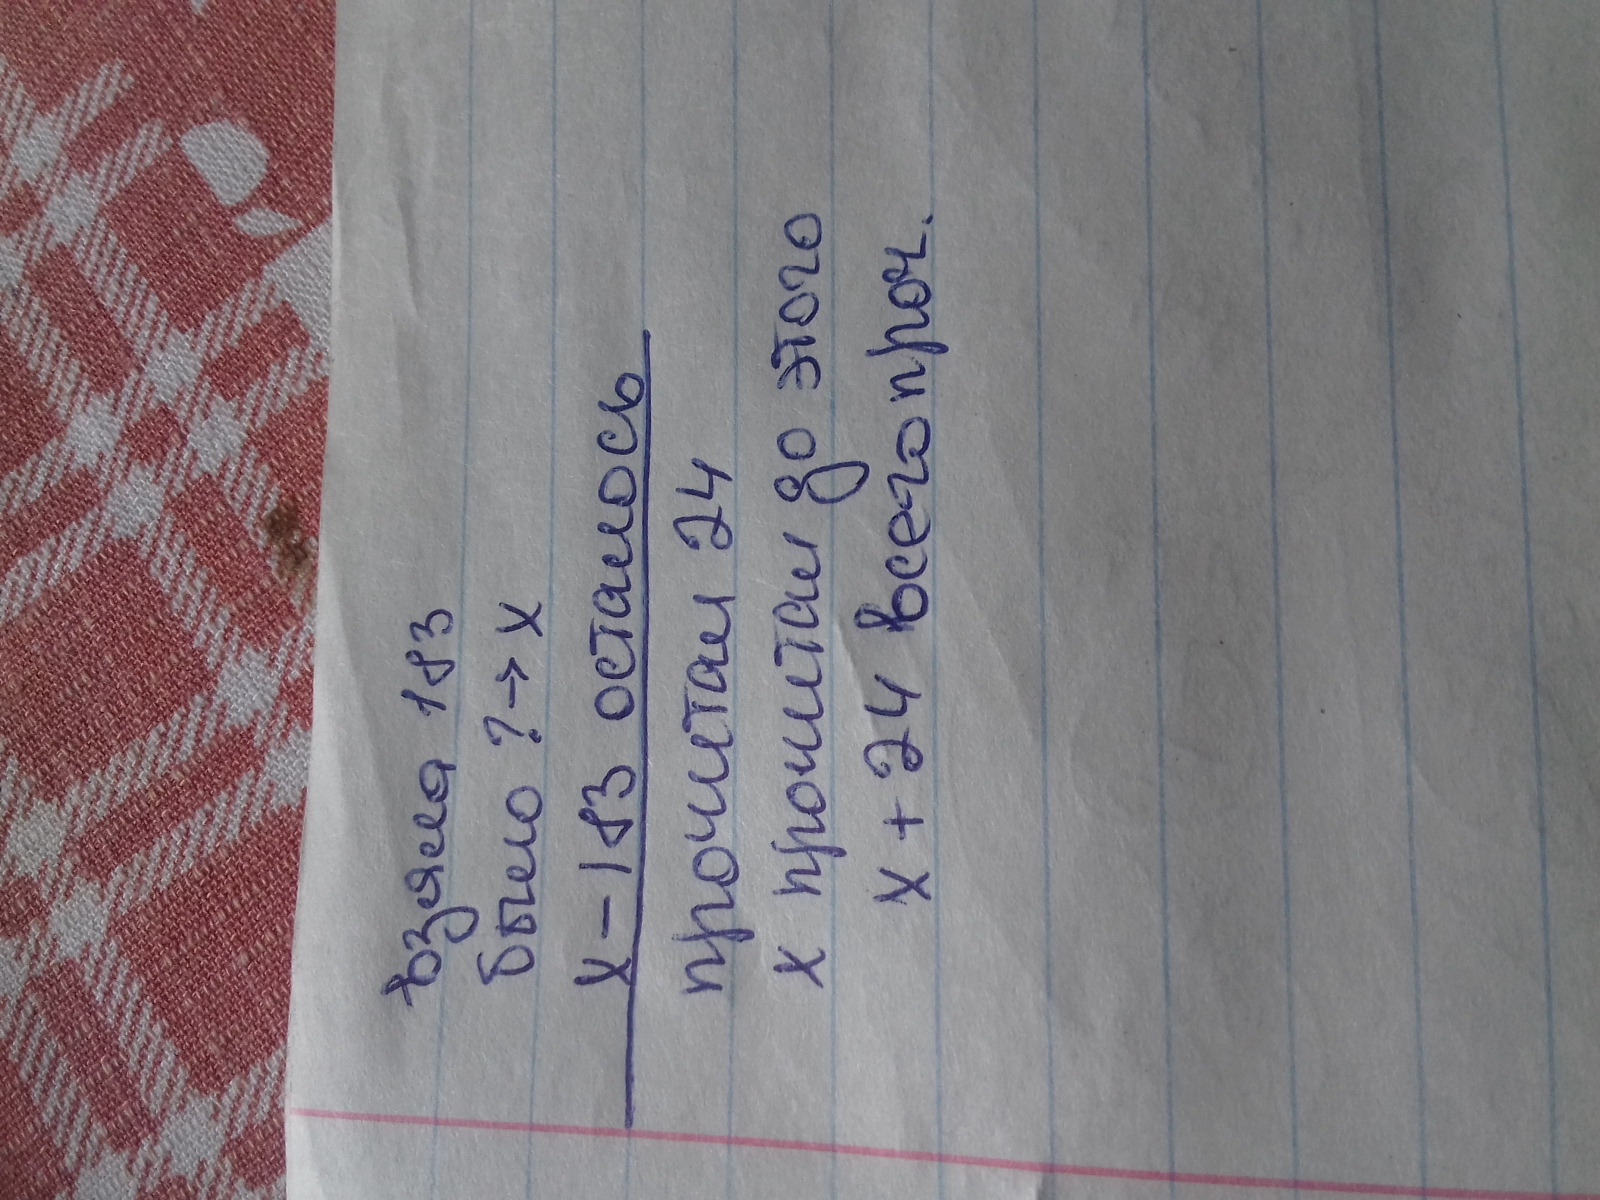 взяла 183
было ? → х
х - 183 осталось
прочитал 24
х прочитал до этого
х + 24 всего проч.